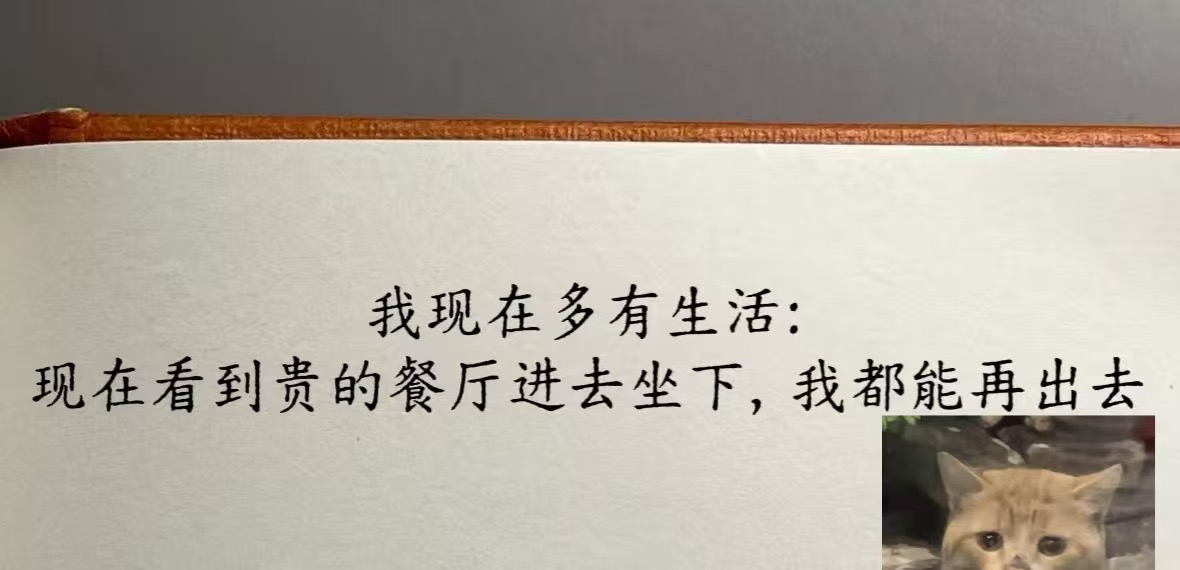 我现在多有生活:
现在看到贵的餐厅进去坐下,我都能再出去